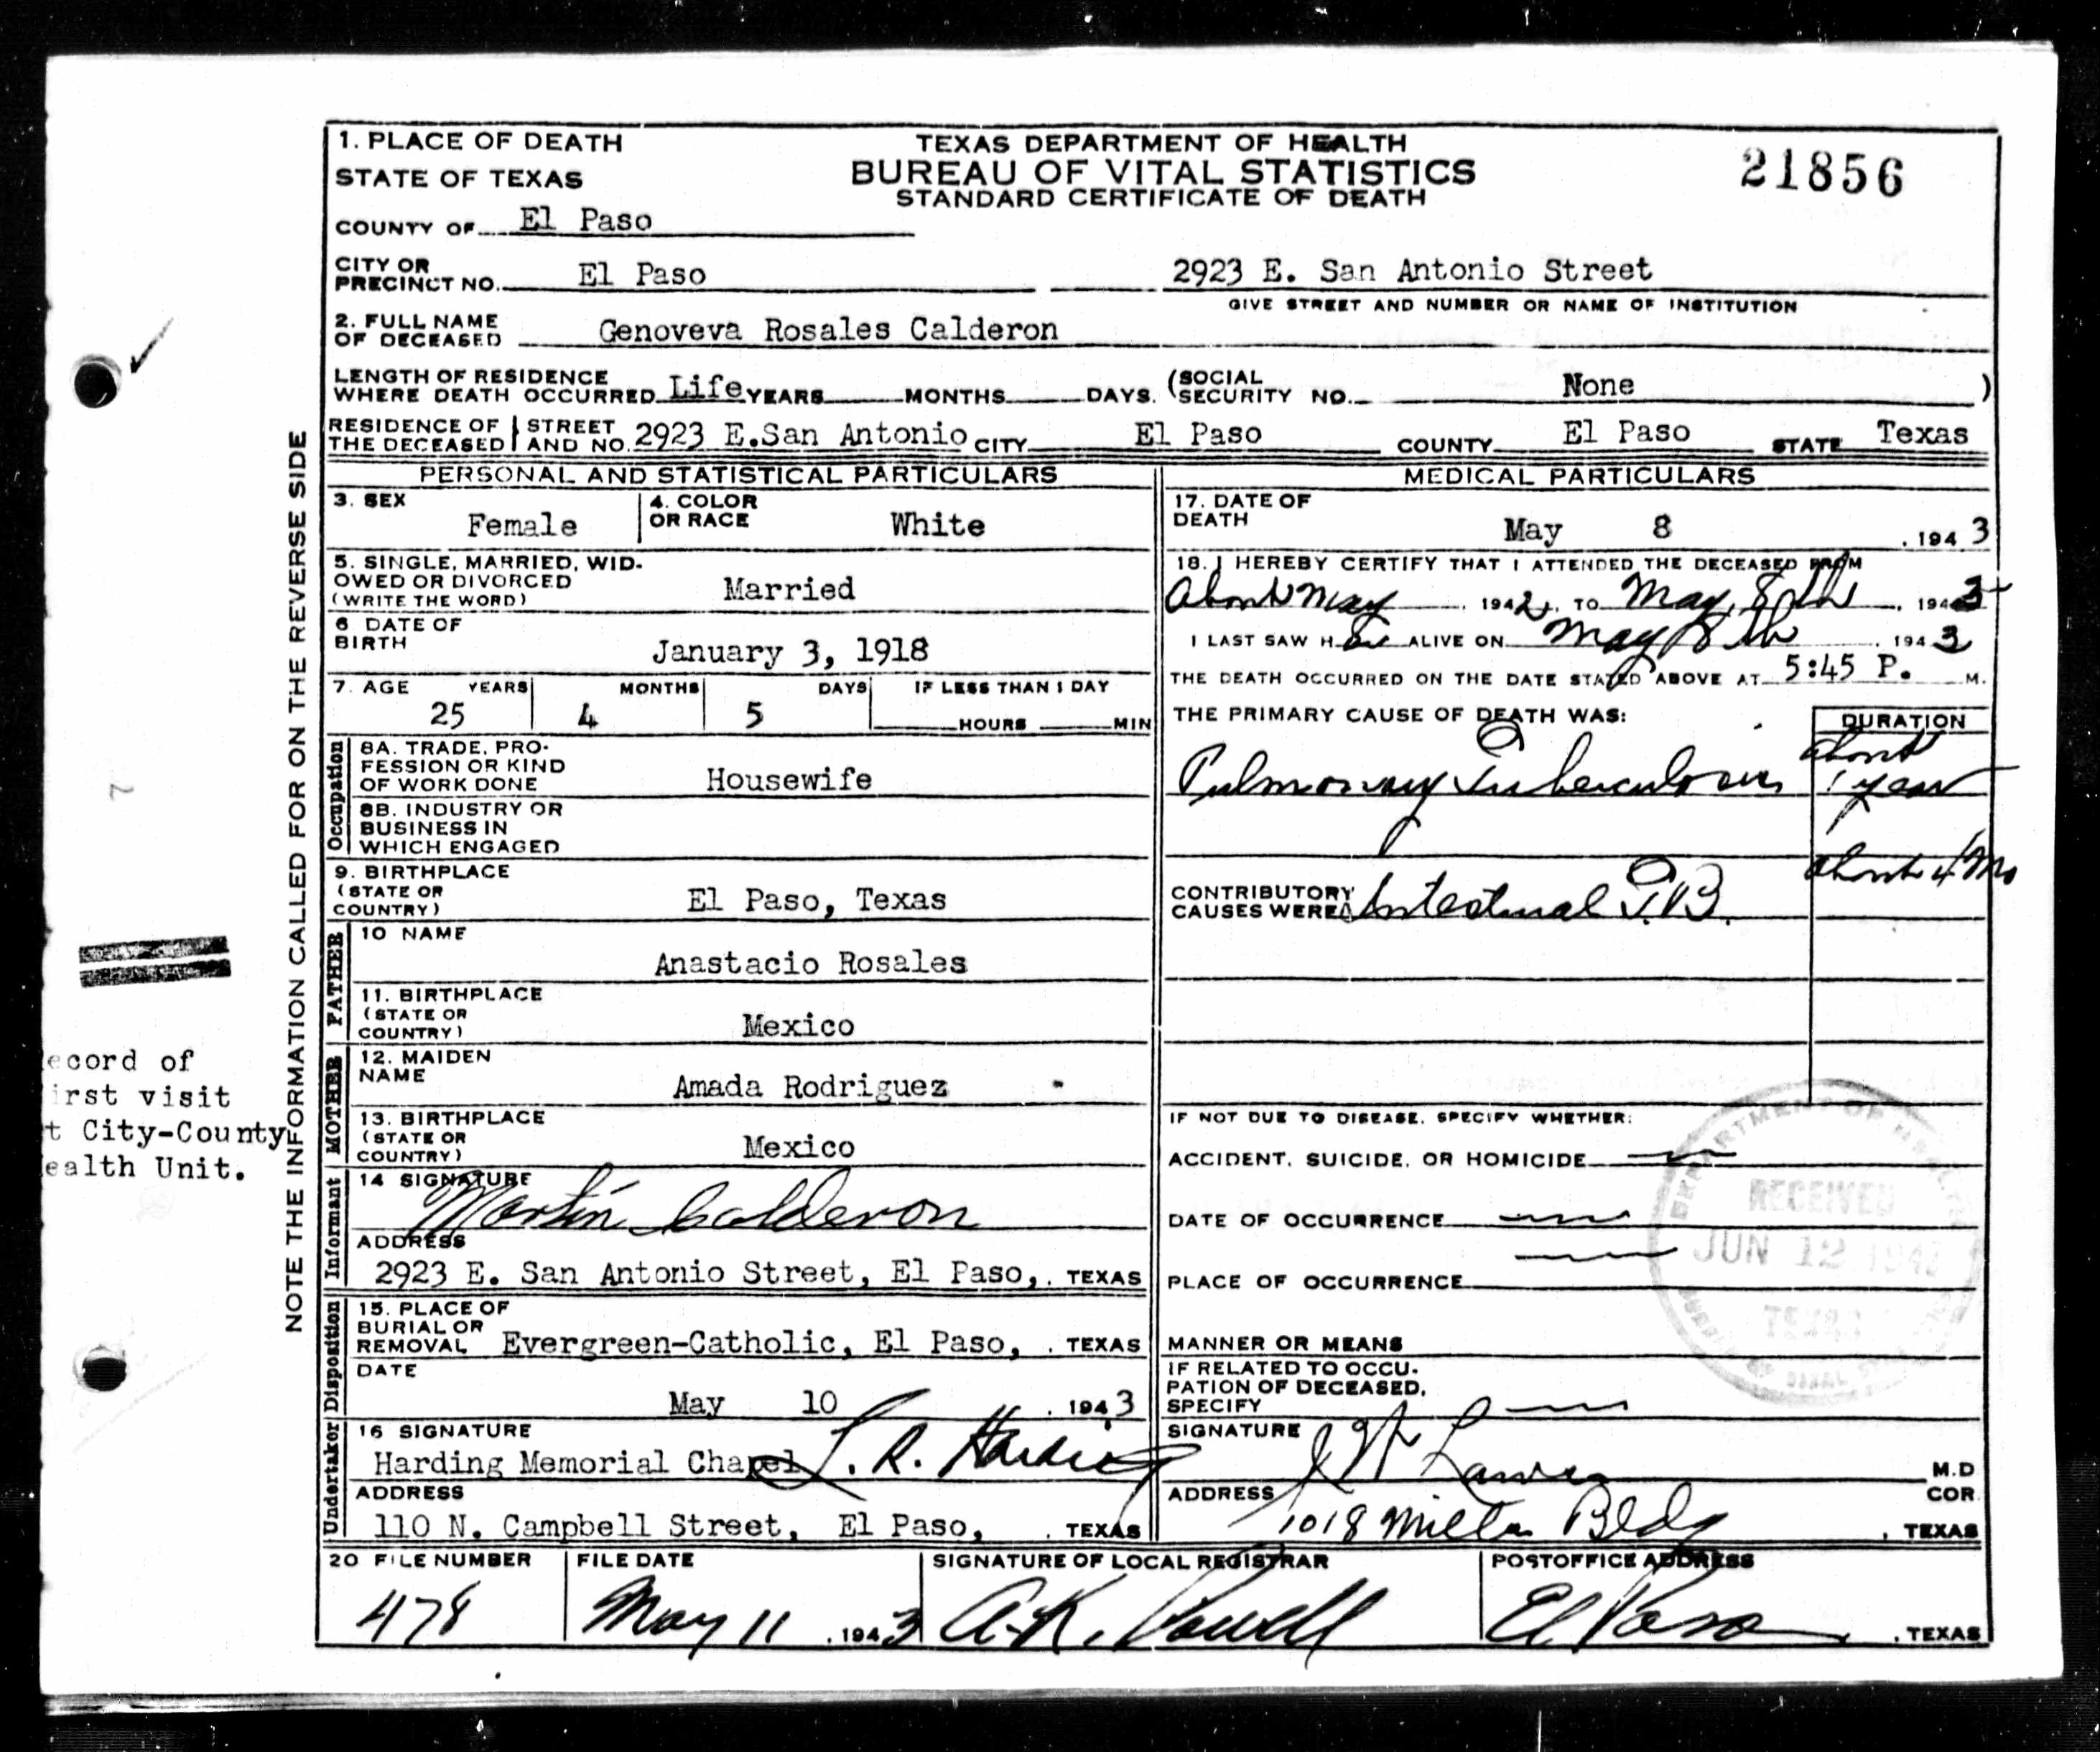 1. PLACE OF DEATH
STATE OF TEXAS
COUNTY OF El Paso
TEXAS DEPARTMENT OF HEALTH
BUREAU OF VITAL STATISTICS
STANDARD CERTIFICATE OF DEATH
21856
CITY OR
PRECINCT NO. El Paso
2923 E. San Antonio Street
GIVE STREET AND NUMBER OR NAME OF INSTITUTION
2. FULL NAME
OF DECEASED Genoveva Rosales Calderon
LENGTH OF RESIDENCE
WHERE DEATH OCCURRED Life YEARS MONTHS DAYS. (SOCIAL
SECURITY NO. None )
RESIDENCE OF
THE DECEASED
STREET
AND NO. 2923 E.San Antonio CITY El Paso COUNTY El Paso STATE Texas
PERSONAL AND STATISTICAL PARTICULARS
3. SEX
Female
4. COLOR
OR RACE White
5. SINGLE, MARRIED, WID-
OWED OR DIVORCED
(WRITE THE WORD) Married
6 DATE OF
BIRTH
January 3, 1918
7. AGE YEARS MONTHS DAYS IF LESS THAN 1 DAY
25 4 5 HOURS MIN
Occupation
8A. TRADE, PRO-
FESSION OR KIND
OF WORK DONE Housewife
8B. INDUSTRY OR
BUSINESS IN
WHICH ENGAGED
9. BIRTHPLACE
(STATE OR
COUNTRY) El Paso, Texas
FATHER
10 NAME
Anastacio Rosales
11. BIRTHPLACE
(STATE OR
COUNTRY) Mexico
MOTHER
12. MAIDEN
NAME
Amada Rodriguez
13. BIRTHPLACE
(STATE OR
COUNTRY) Mexico
Informant
14 SIGNATURE
Martin Calderon
ADDRESS
2923 E. San Antonio Street, El Paso, . TEXAS
Disposition
15. PLACE OF
BURIAL OR
REMOVAL Evergreen-Catholic, El Paso, . TEXAS
DATE
May 10 . 1943
Undertaker
16 SIGNATURE
Harding Memorial Chapel L. R. Harding
ADDRESS
110 N. Campbell Street, El Paso, . TEXAS
MEDICAL PARTICULARS
17. DATE OF
DEATH
May 8 . 1943
18. I HEREBY CERTIFY THAT I ATTENDED THE DECEASED FROM
About May . 1942. TO May, 8th . 1943
I LAST SAW H er ALIVE ON May 8th . 1943
THE DEATH OCCURRED ON THE DATE STATED ABOVE AT 5:45 P. M.
THE PRIMARY CAUSE OF DEATH WAS:
DURATION
Pulmonary Tuberculosis
about
1 year
CONTRIBUTORY
CAUSES WERE Intestinal T.B.
about 4 Mo
IF NOT DUE TO DISEASE, SPECIFY WHETHER:
ACCIDENT, SUICIDE, OR HOMICIDE
DATE OF OCCURRENCE
PLACE OF OCCURRENCE
MANNER OR MEANS
IF RELATED TO OCCU-
PATION OF DECEASED,
SPECIFY
SIGNATURE
M.D
COR
ADDRESS
1018 Bldg . TEXAS
DEPARTMENT OF HEALTH
RECEIVED
JUN 12 194
TEXAS
20 FILE NUMBER
478
FILE DATE
May 11 . 1943
SIGNATURE OF LOCAL REGISTRAR
A.K. Powell
POSTOFFICE ADDRESS
El Paso . TEXAS
NOTE THE INFORMATION CALLED FOR ON THE REVERSE SIDE
7
ecord of
irst visit
t City-County
ealth Unit.